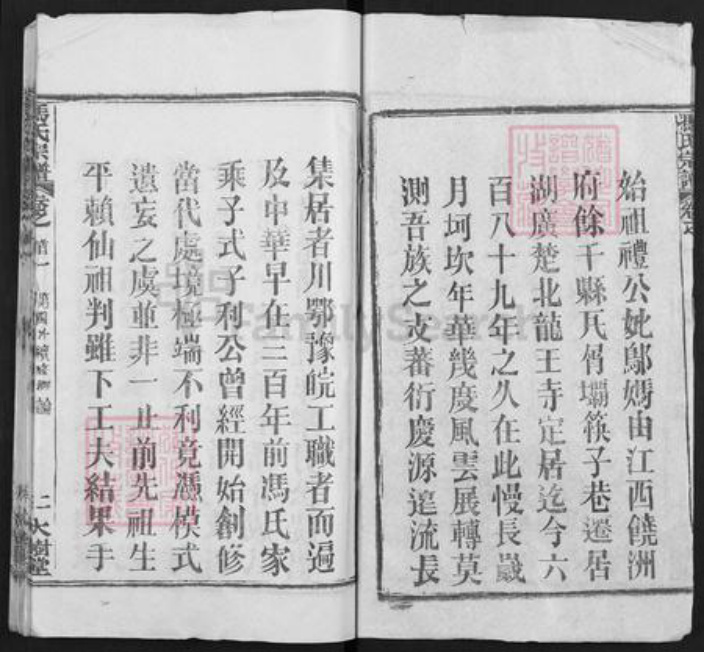 始祖禮公妣鄔媽由江西饒洲
府餘千縣瓦屑壩筷子巷遷居
湖廣楚北龍王寺定居迄今六
百八十九年之久在此慢長歲
月坷坎年華幾度風雲展轉莫
測吾族之支蕃衍慶源遠流長
集居者川鄂豫皖工職者而遍
及中華早在三百年前馮氏家
乘子式子利公曾經開始創修
當代處境極端不利竟憑模式
遺妄之虞並非一止前先祖生
平賴仙祖判雖下工夫結果手
馮氏宗譜
卷之
首一
二
大樹堂
FamilySearch